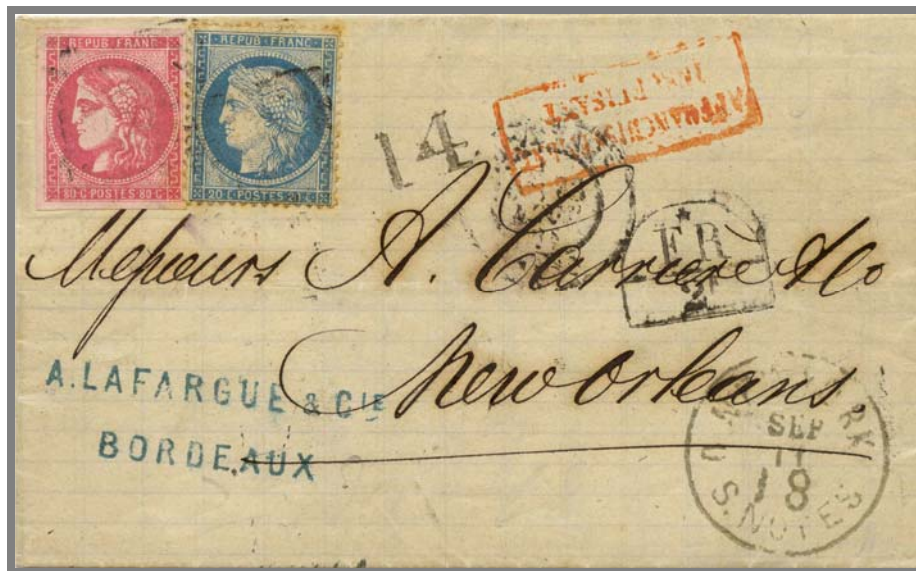 REPUB·FRANC·
80·C·POSTES·80·C
REPUB·FRANC·
20·C·POSTES·20·C
14
AFFRANCHISSEMENT
INSUFFISANT
F R
2
Messieurs A. Carriere & Co
New Orleans.
A. LAFARGUE & CIE
BORDEAUX
NEW YORK
SEP
11
8
U.S. NOTES